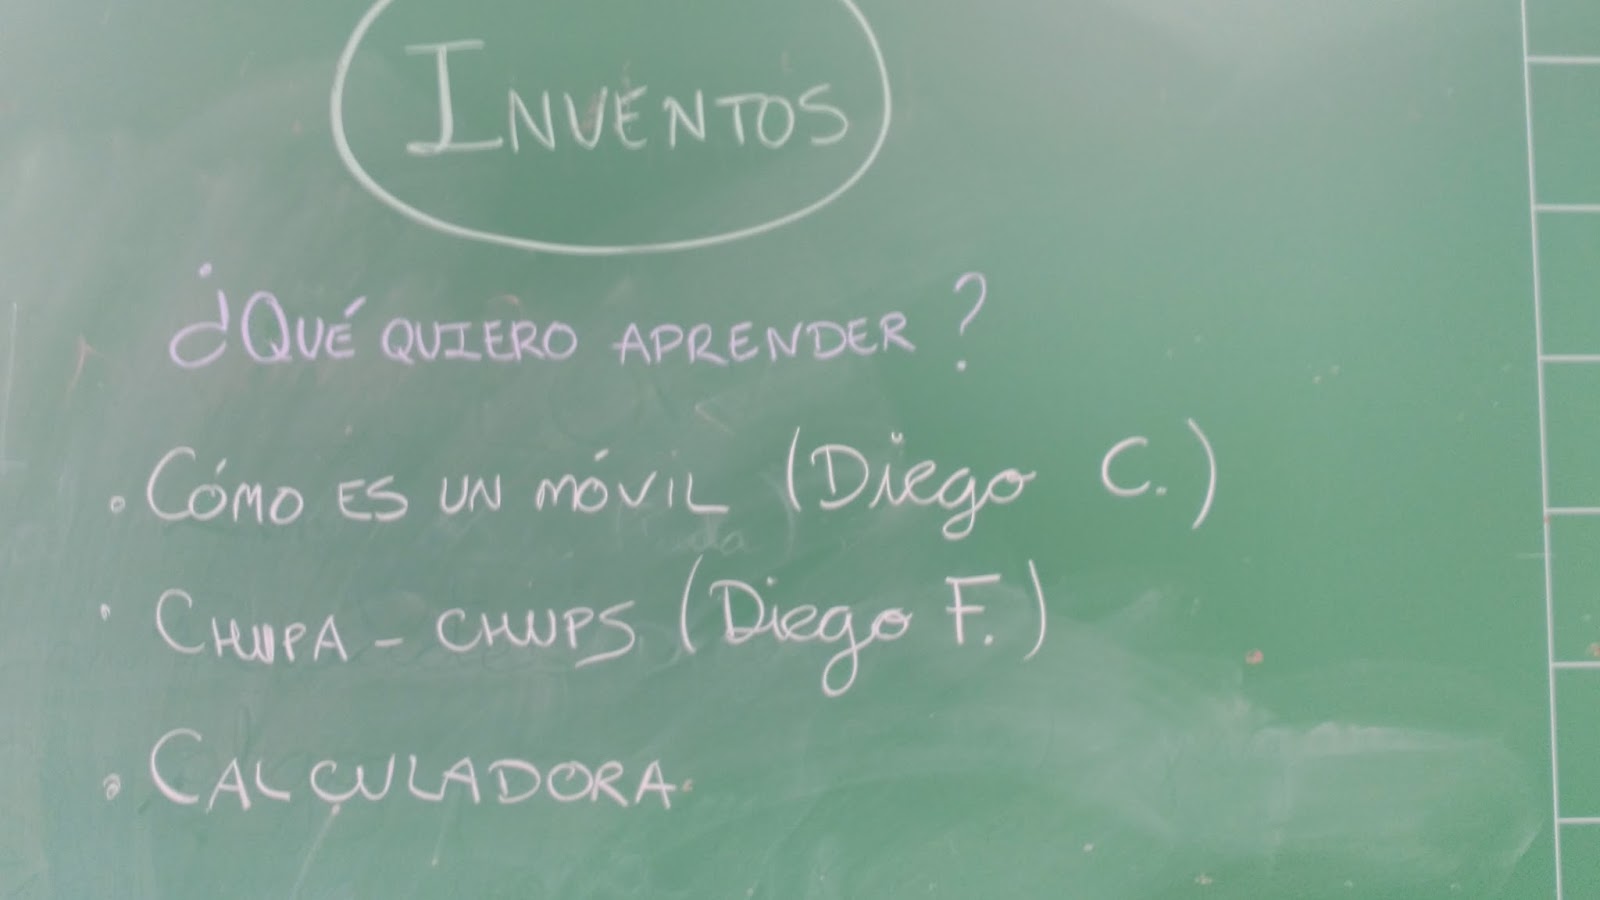 INVENTOS
¿QUÉ QUIERO APRENDER?
• CÓMO ES UN MÓVIL (Diego C.)
• CHUPA - CHUPS (Diego F.)
• CALCULADORA